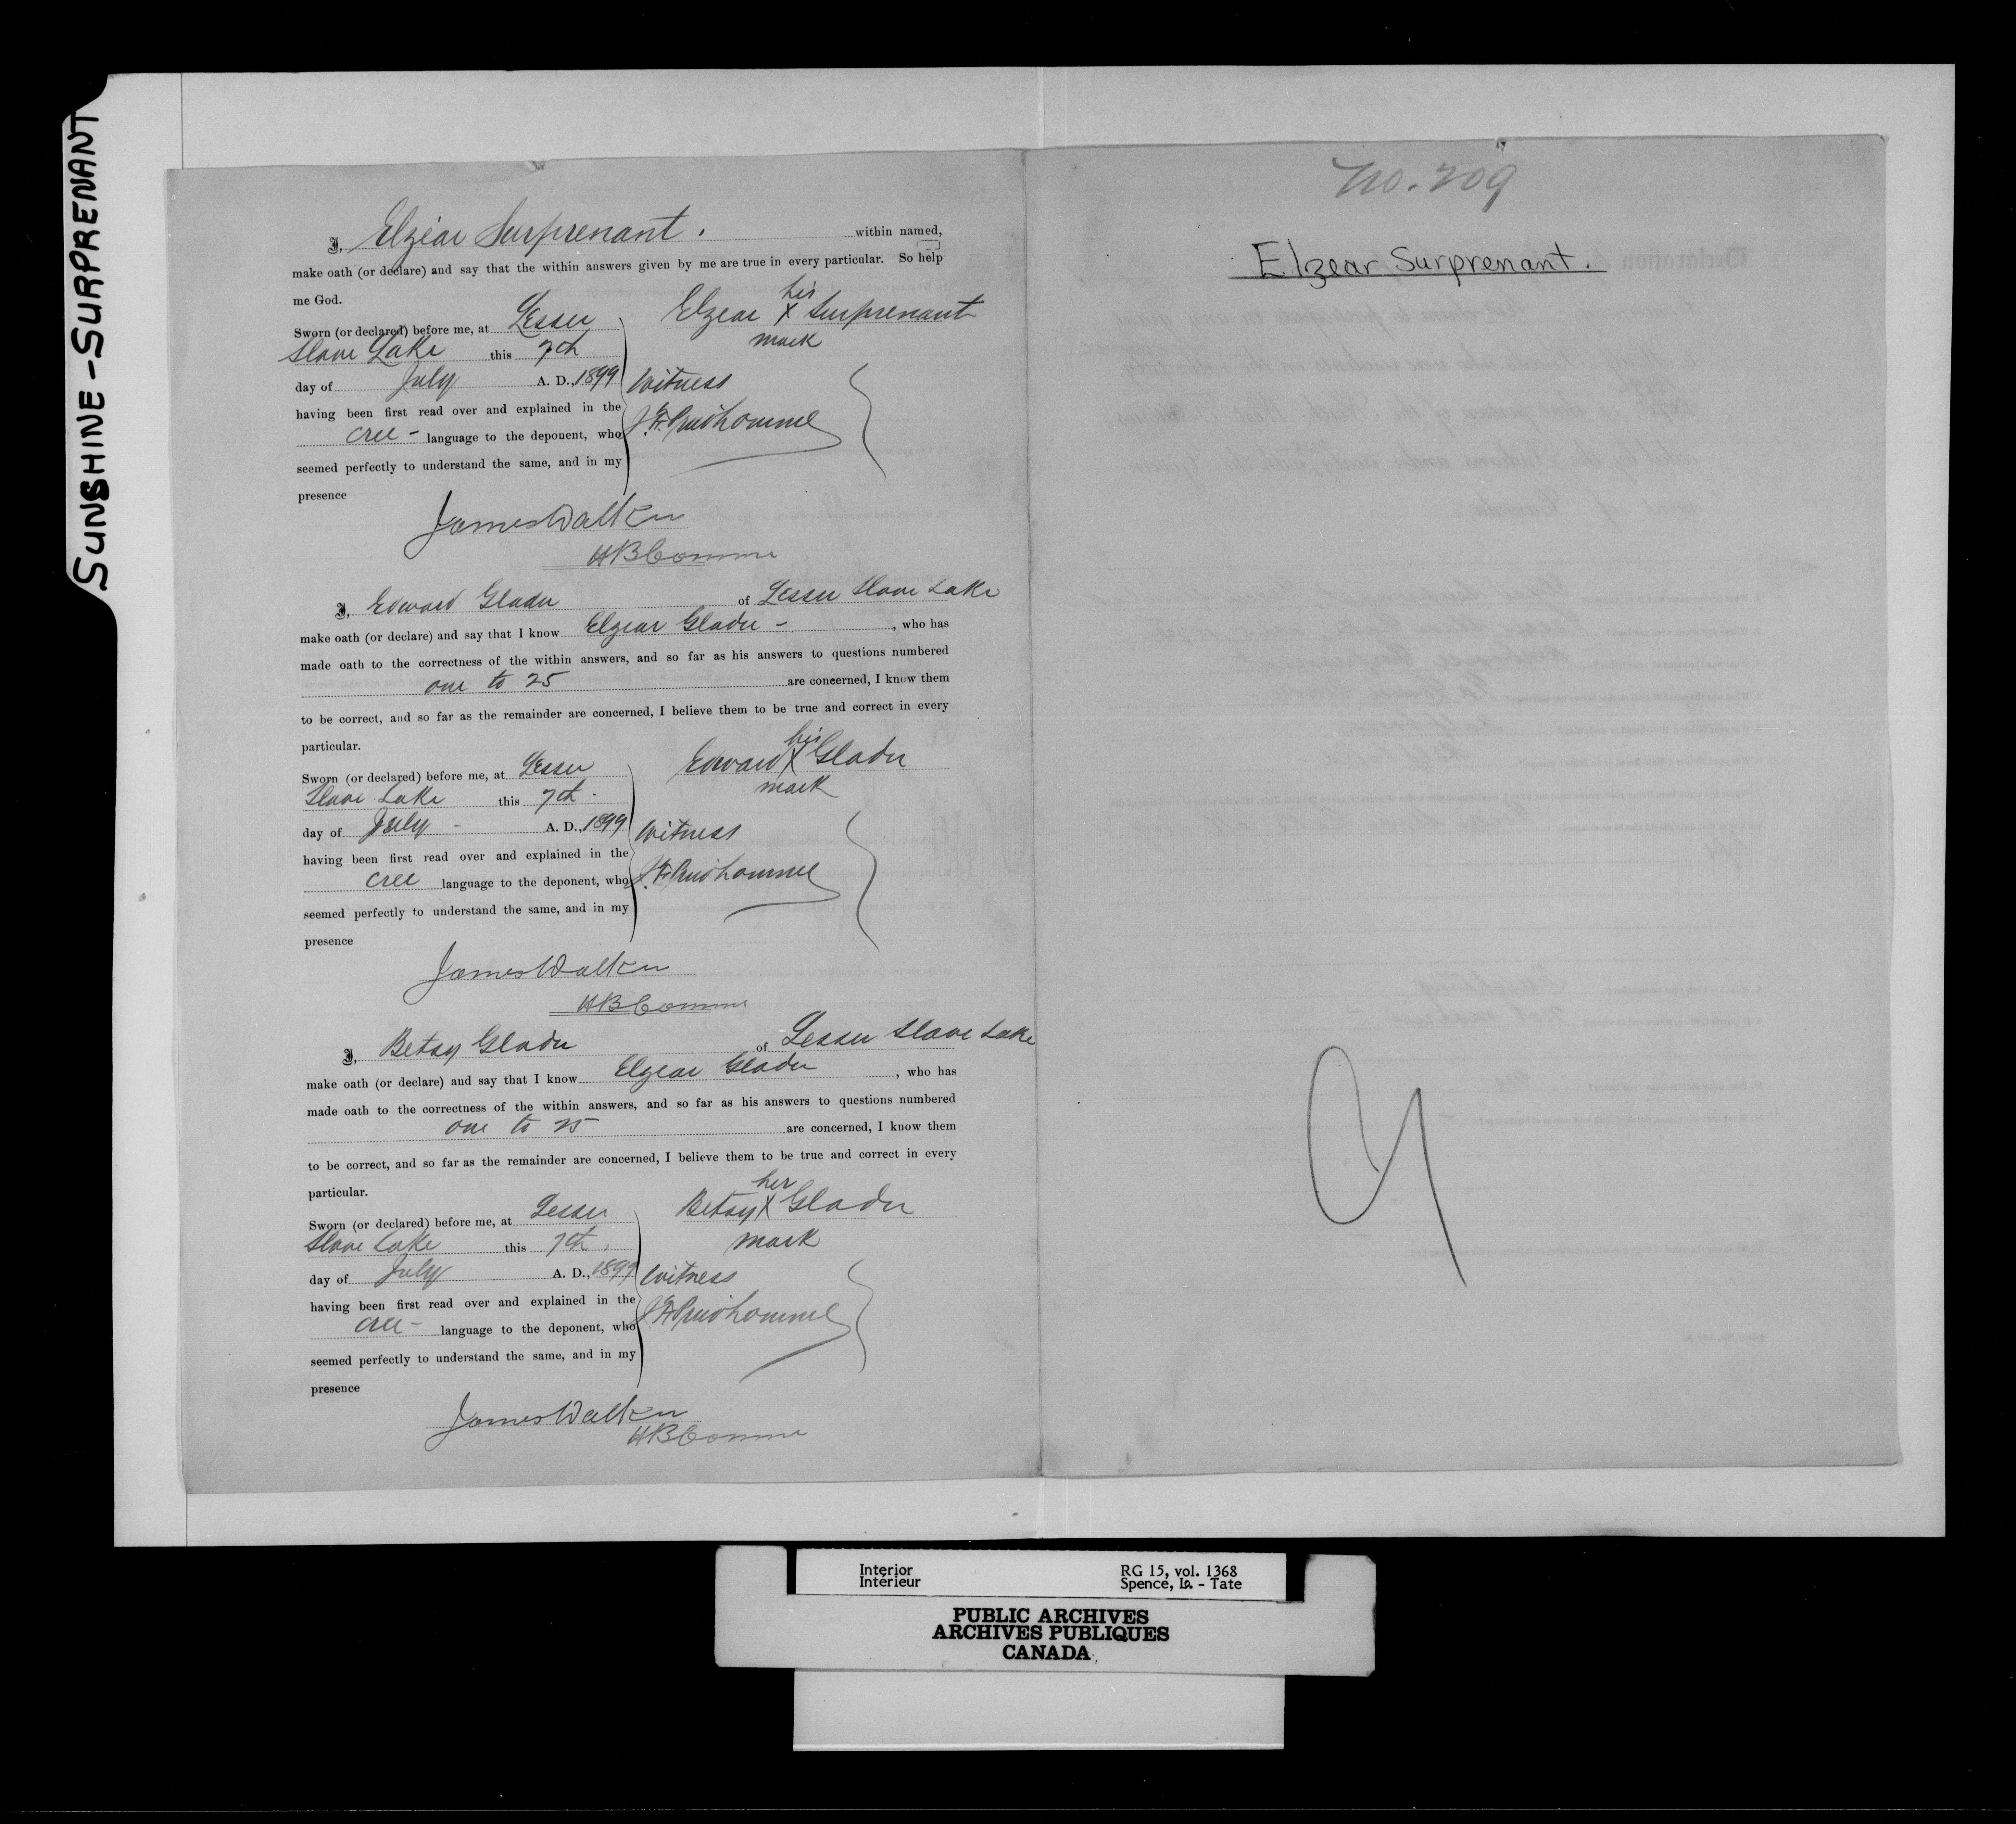 SUNSHINE-SURPRENANT
I, Elzéar Surprenant. within named,
make oath (or declare) and say that the within answers given by me are true in every particular. So help
me God.
Sworn (or declared) before me, at Lesser
Slave Lake this 7th
day of July A. D., 1899
having been first read over and explained in the
Cree - language to the deponent, who
seemed perfectly to understand the same, and in my
presence
his
Elzear X Surprenant
mark
Witness
Prudhomme
James Walker
HB Comme
I, Edward Gladu of Lesser Slave Lake
make oath (or declare) and say that I know Elzear Gladu - , who has
made oath to the correctness of the within answers, and so far as his answers to questions numbered
one to 25 are concerned, I know them
to be correct, and so far as the remainder are concerned, I believe them to be true and correct in every
particular.
Sworn (or declared) before me, at Lesser
Slave Lake this 7th
day of July - A. D., 1899
having been first read over and explained in the
Cree language to the deponent, who
seemed perfectly to understand the same, and in my
presence
his
Edward X Gladu
mark
Witness
Prudhomme
James Walker
HB Comme
I, Betsy Gladu of Lesser Slave Lake
make oath (or declare) and say that I know Elzear Gladu , who has
made oath to the correctness of the within answers, and so far as his answers to questions numbered
one to 25 are concerned, I know them
to be correct, and so far as the remainder are concerned, I believe them to be true and correct in every
particular.
Sworn (or declared) before me, at Lesser
Slave Lake this 7th
day of July A. D., 1899
having been first read over and explained in the
Cree - language to the deponent, who
seemed perfectly to understand the same, and in my
presence
her
Betsy X Gladu
mark
Witness
Prudhomme
James Walker
HB Comme
No. 209
Elzear Surprenant.
Interior
Intérieur
RG 15, vol. 1368
Spence, Is. - Tate
PUBLIC ARCHIVES
ARCHIVES PUBLIQUES
CANADA